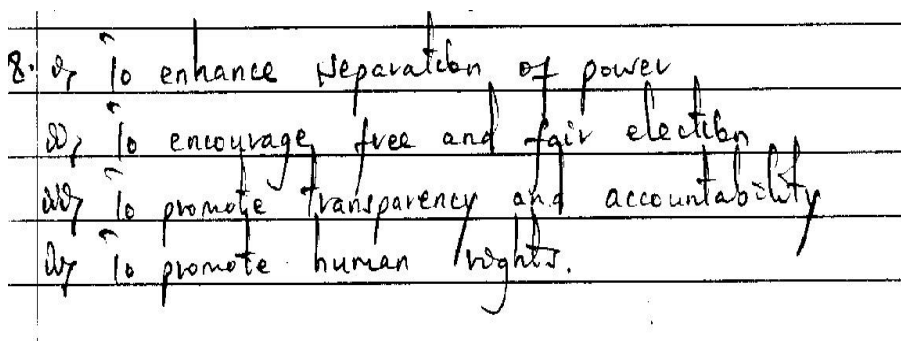 8. i, To enhance separation of power
ii, To encourage free and fair election
iii, To promote transparency and accountability
iv, To promote human rights.